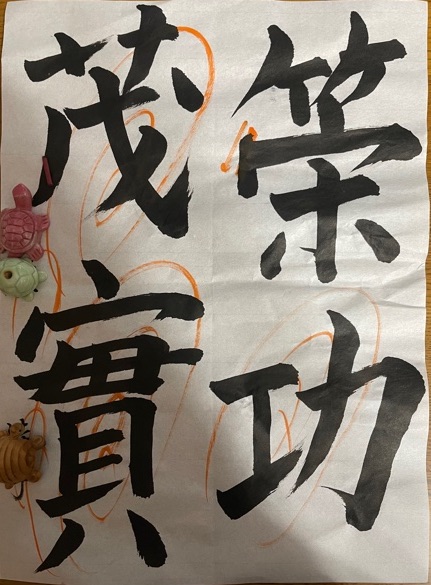 策功
茂實